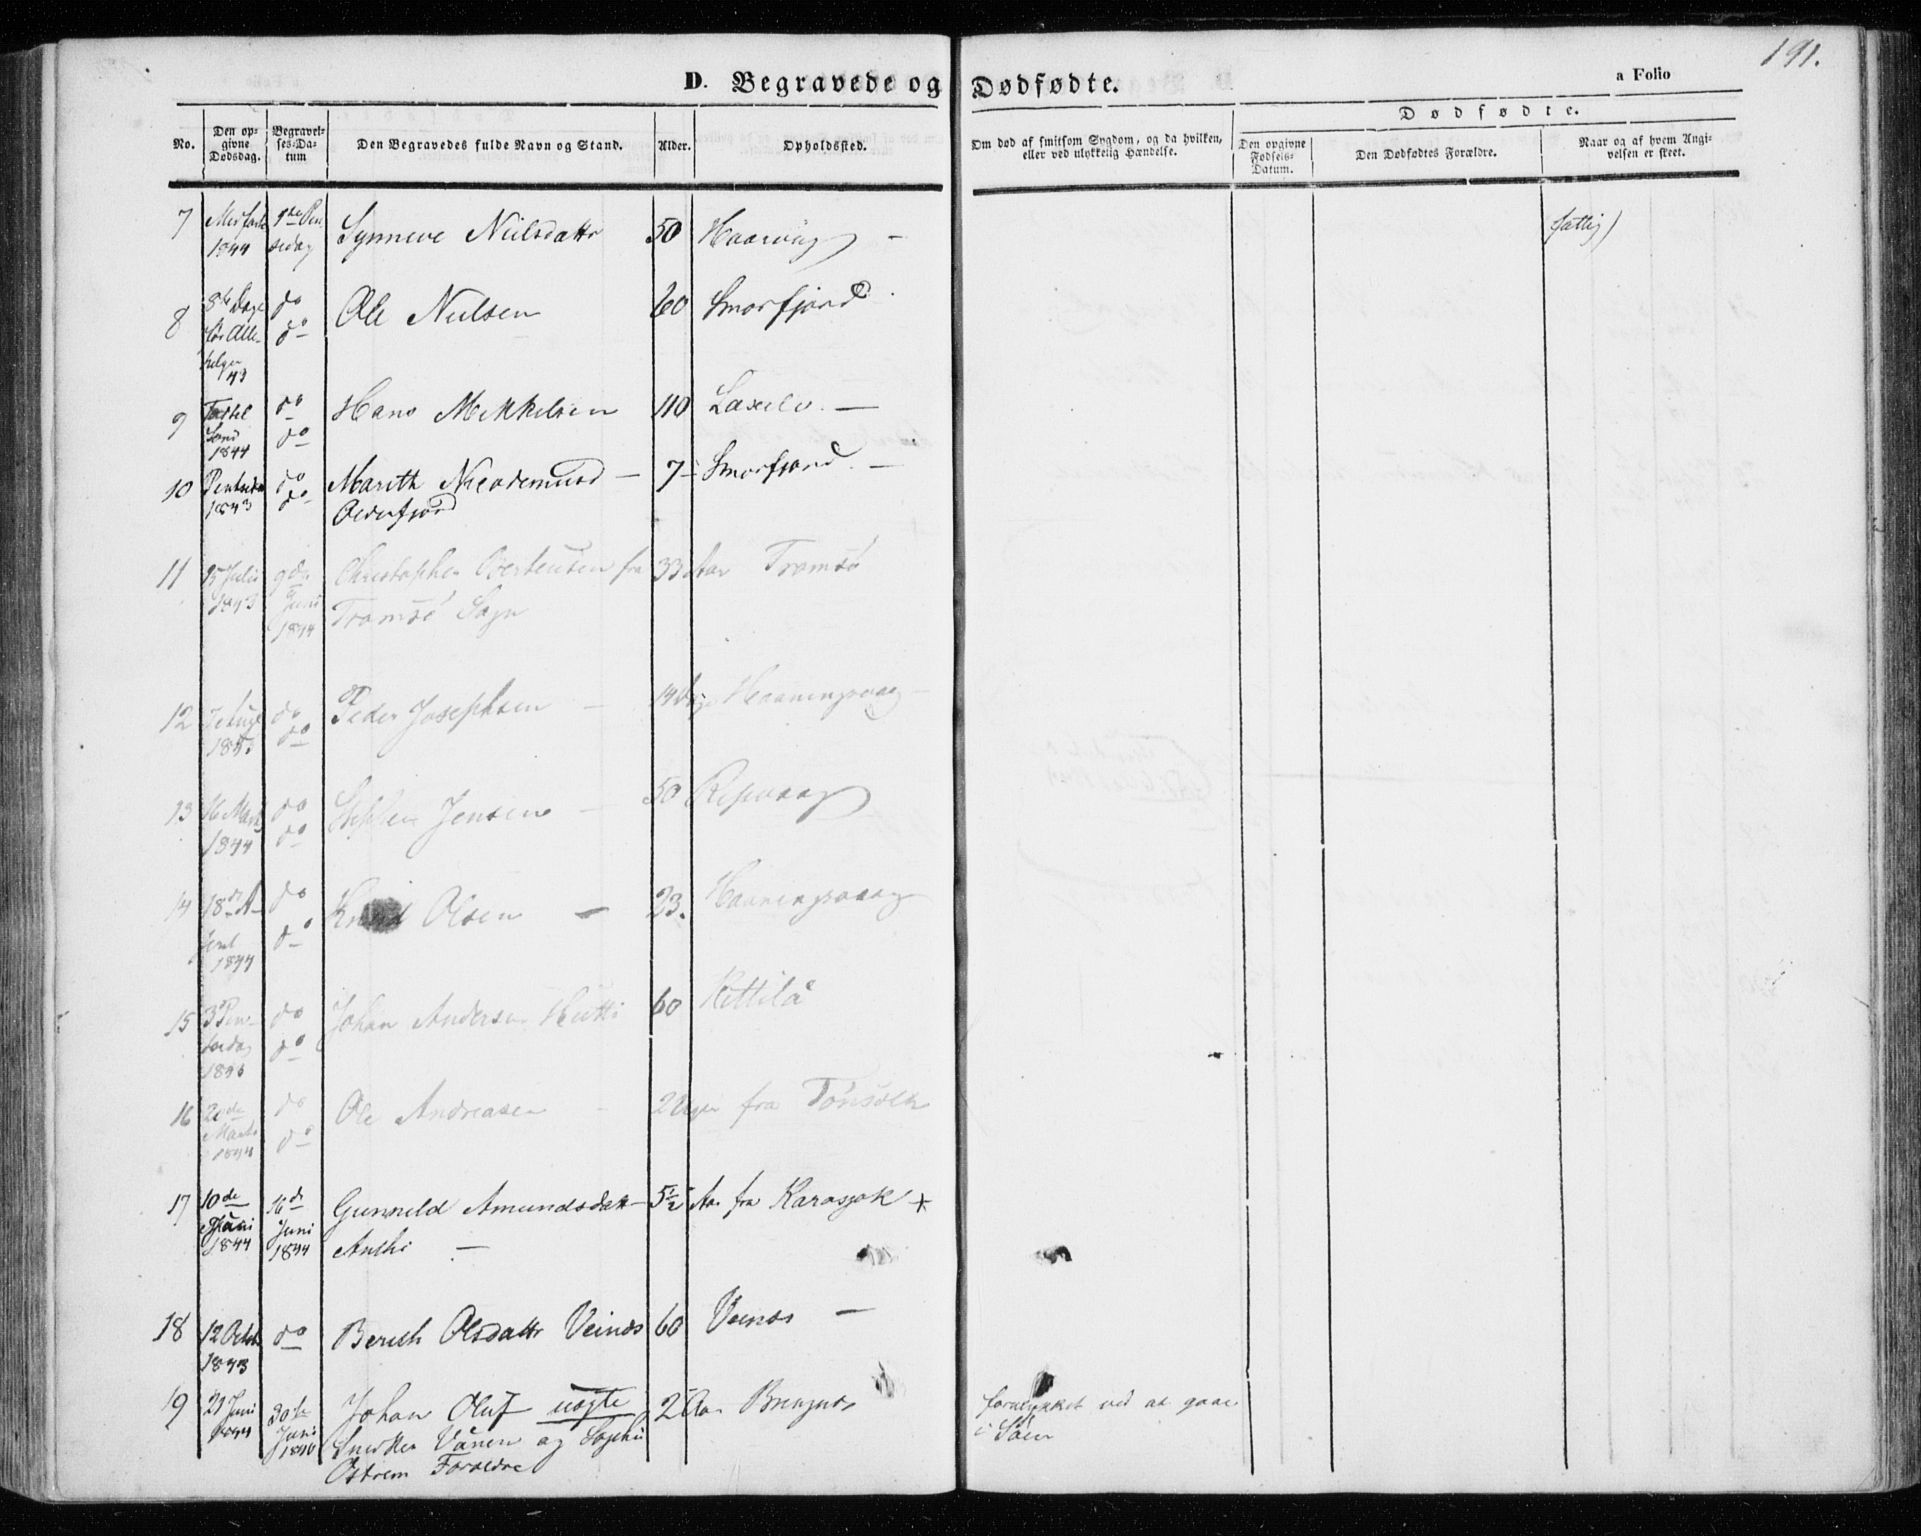 191.
D. Begravede og Dødfødte.
a Folio
No.
Den opgivne Dødsdag.
Begravelses-Datum
Den Begravedes fulde Navn og Stand.
Alder.
Opholdssted.
Om død af smitsom Sygdom, og da hvilken, eller ved ulykkelig Hændelse.
Dødfødte.
Den opgivne Fødsels-Datum.
Den Dødfødtes Forældre.
Naar og af hvem Angivelsen er skeet.
7 1844 1ste Pinsedag Synneve Nielsdattr 50 fattig)
8 8te Dage før Allehelgen 43 do do Ole Nielsen 60 Smorfjord
9 1844 do do Hans Mikkelsen 110 Laxelv. —
10 1843 do do Marith Nicodemusd — 7 — Smorfjord. —
Olderfjord
11 15 Julii 1843 9de Juni 1844 Christopher fra 33 Aar Tromsö
Tromsö Sogn
12 1843 do do Peder Josephsen — 14 Dage Honningsvaag —
13 16 Marts 1844 do do Steffen Jensen — 50 Repvaag
14 18de April 1844 do do Knud Olsen — 23. Honningsvaag
15 3 Pinsedag do do Johan Andersen Hutti 60 Kittilä
16 20de Marts 1844 do do Ole Andreasen — 2 Uger fra
17 10de Juni 1844 16de Juni 1844 Gunnild Amundsdatt— 5½ Aar fra Karasjok +
Anthi —
18 12 Octob 1843 do Berith Olsdattr Veines 60 Veines —
19 21 Juni 1844 30te Juni Johan Oluf uægte 2 Aar forulykket ved at gaae
Snedker og Sophie i Söen
Östrem Forældre